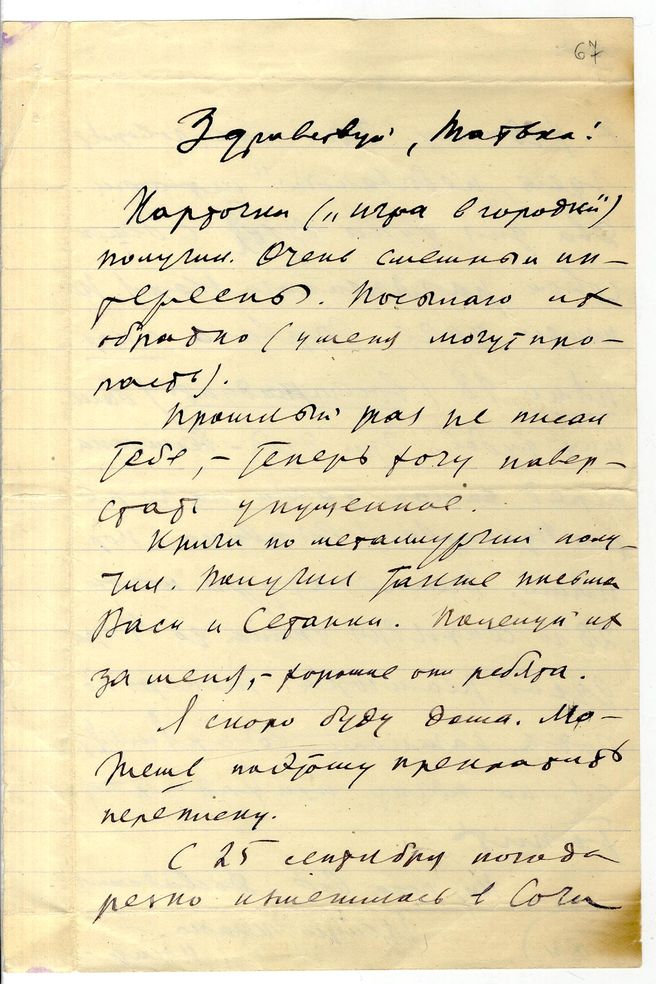 67
Здравствуй, Татька!
Карточки („игра в городки“)
получил. Очень смешны и ин-
тересны. Посылаю их
обратно (у меня могут про-
пасть).
Прошлый раз не писал
тебе, – теперь хочу навер-
стать упущенное.
Книги по металлургии полу-
чил. Получил также письма
Васи и Сетанки. Поцелуй их
за меня, – хорошие они ребята.
Я скоро буду дома. Мо-
жешь поэтому прекратить
переписку.
С 25 сентября погода
резко изменилась в Сочи